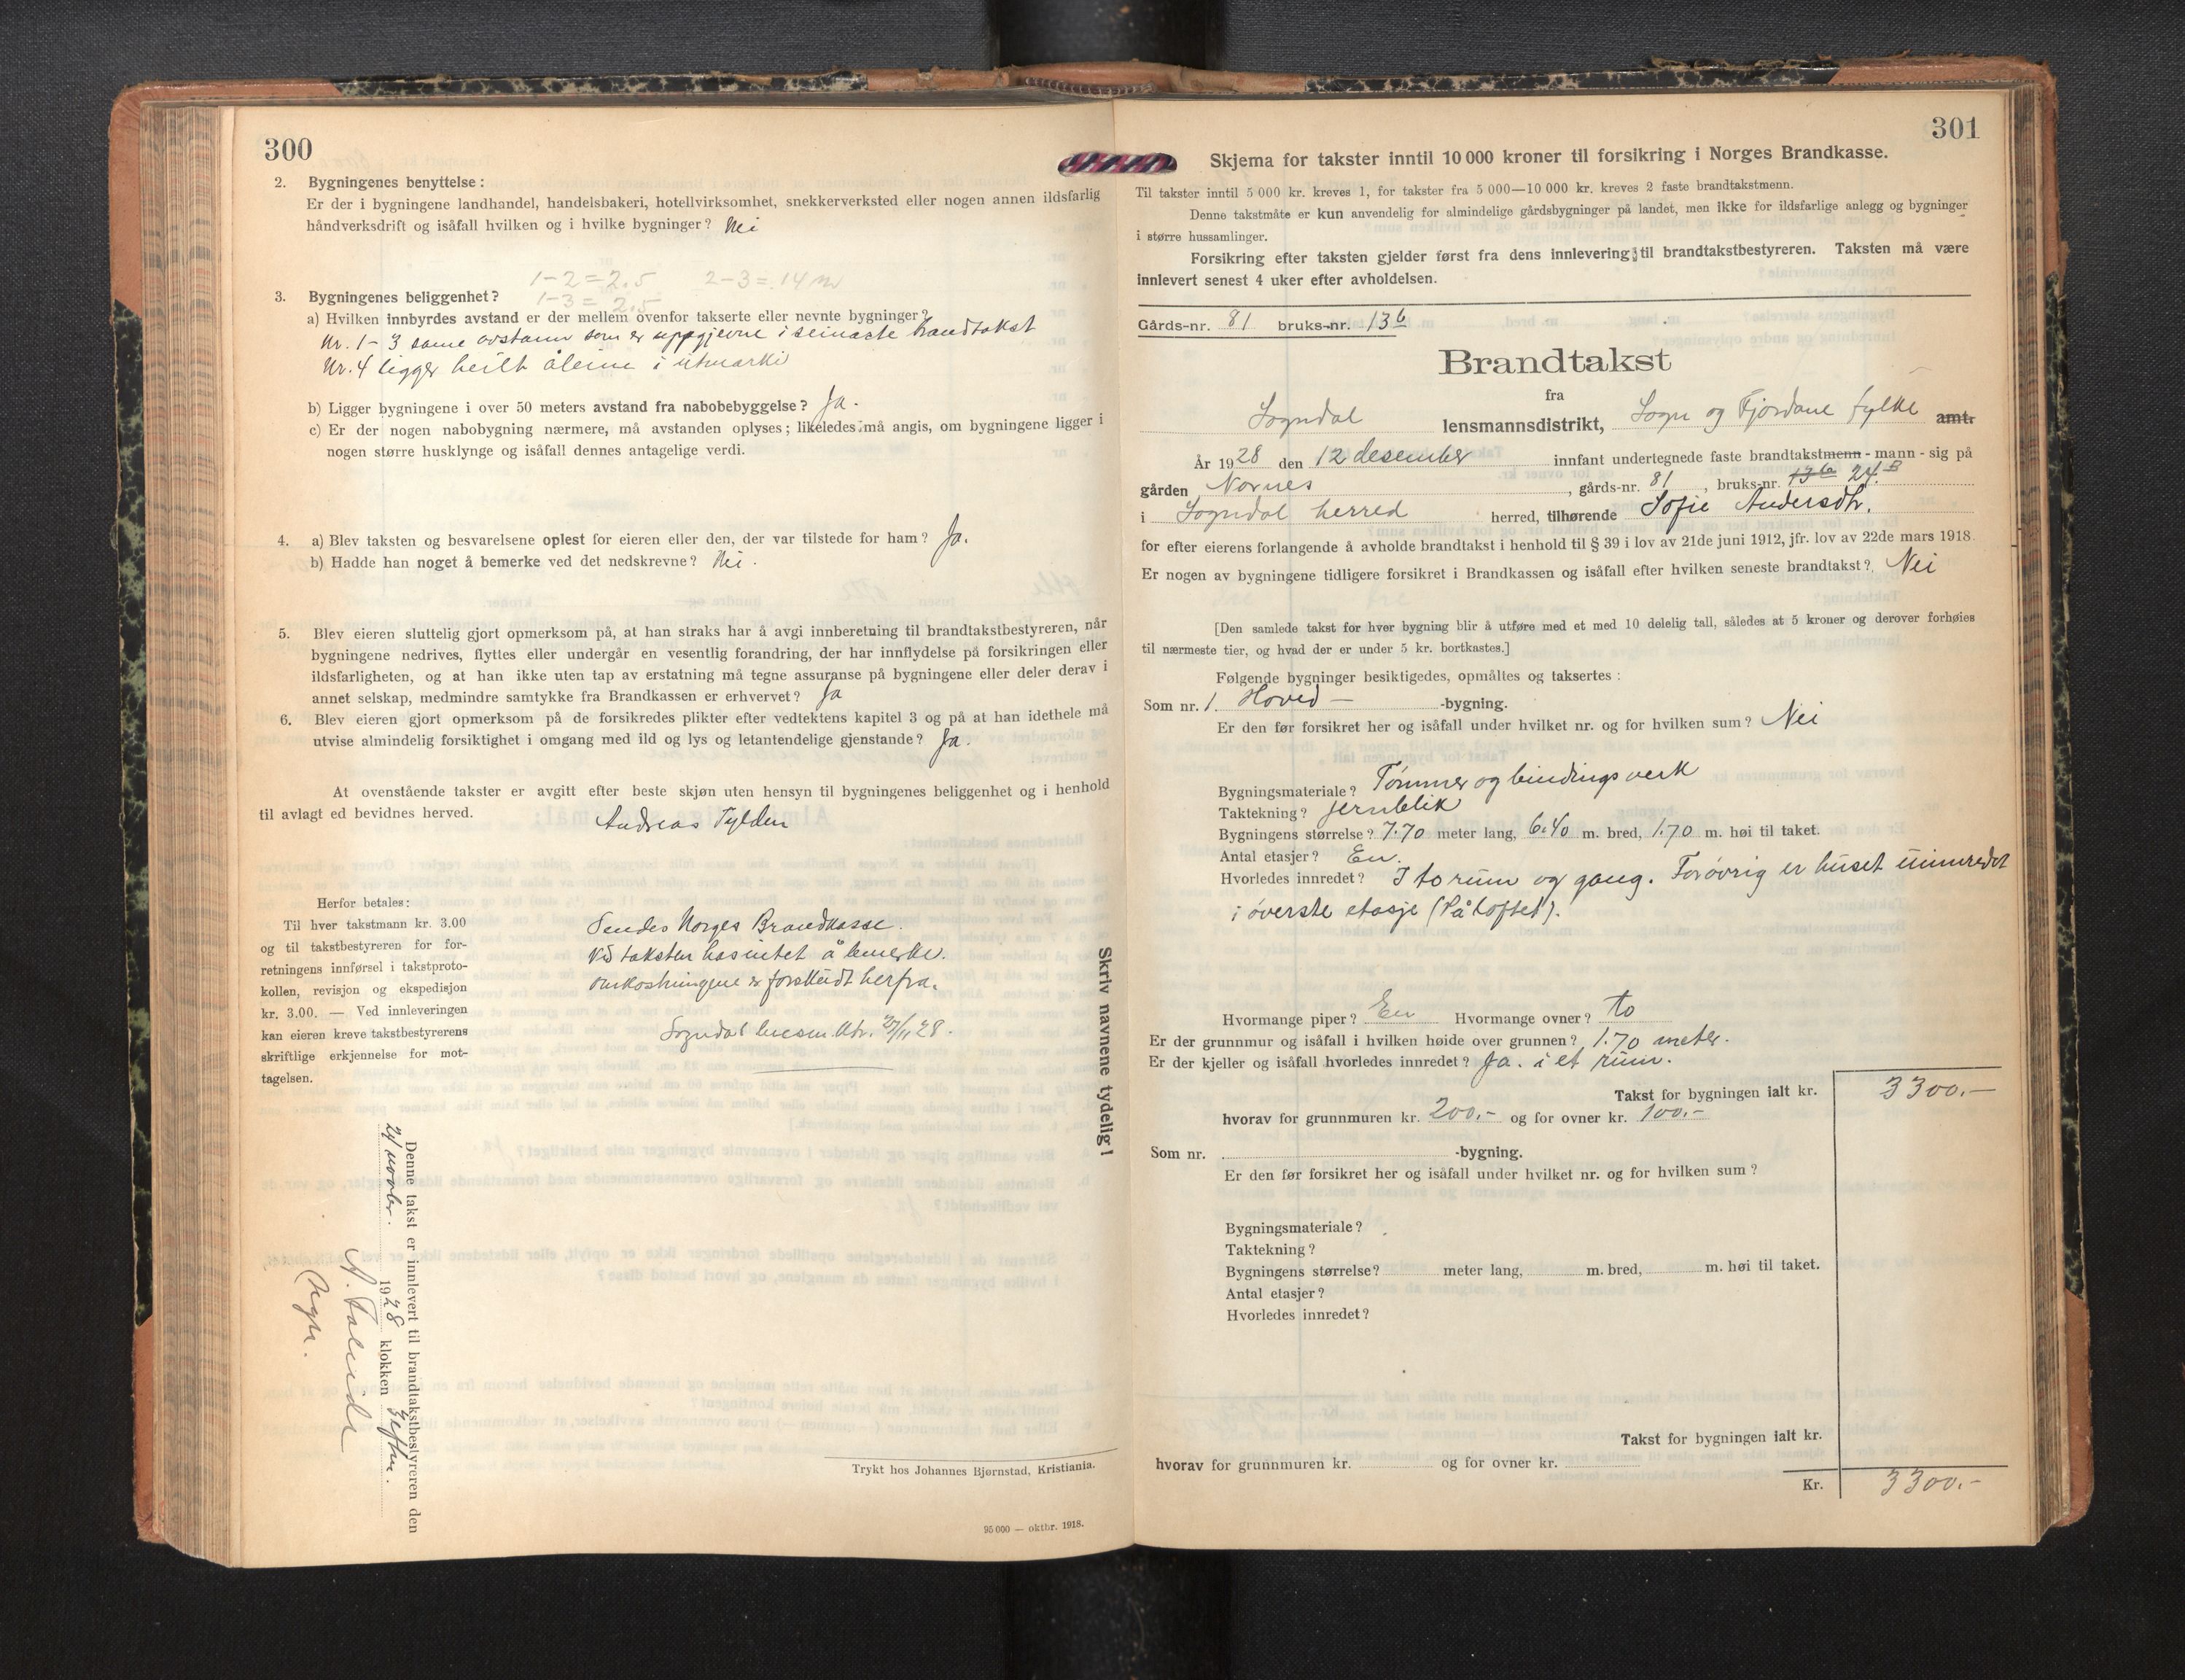 300
2. Bygningenes benyttelse:
Er der i bygningene landhandel, handelsbakeri, hotellvirksomhet, snekkerverksted eller nogen annen ildsfarlig
håndverksdrift og isåfall hvilken og i hvilke bygninger? Nei
1-2=2.5 2-3=14 m
3. Bygningenes beliggenhet? 1-3=2.5
a) Hvilken innbyrdes avstand er der mellem ovenfor takserte eller nevnte bygninger?
Nr. 1-3 same avstann som er uppgjevne i seinaste brandtakst
Nr. 4 ligger heilt åleine i utmarki
b) Ligger bygningene i over 50 meters avstand fra nabobebyggelse? Ja.
c) Er der nogen nabobygning nærmere, må avstanden oplyses; likeledes må angis, om bygningene ligger i
nogen større husklynge og isåfall dennes antagelige verdi.
4. a) Blev taksten og besvarelsene oplest for eieren eller den, der var tilstede for ham? Ja.
b) Hadde han noget å bemerke ved det nedskrevne? Nei.
5. Blev eieren sluttelig gjort opmerksom på, at han straks har å avgi innberetning til brandtakstbestyreren, når
bygningene nedrives, flyttes eller undergår en vesentlig forandring, der har innflydelse på forsikringen eller
ildsfarligheten, og at han ikke uten tap av erstatning må tegne assuranse på bygningene eller deler derav i
annet selskap, medmindre samtykke fra Brandkassen er erhvervet? Ja
6. Blev eieren gjort opmerksom på de forsikredes plikter efter vedtektens kapitel 3 og på at han idethele må
utvise almindelig forsiktighet i omgang med ild og lys og letantendelige gjenstande? Ja.
At ovenstående takster er avgitt efter beste skjøn uten hensyn til bygningenes beliggenhet og i henhold
til avlagt ed bevidnes herved.
Andreas Tylden
Herfor betales:
Til hver takstmann kr. 3.00
og til takstbestyreren for for-
retningens innførsel i takstproto-
kollen, revisjon og ekspedisjon
kr. 3.00. — Ved innleveringen
kan eieren kreve takstbestyrerens
skriftlige erkjennelse for mot-
tagelsen.
Sendes Norges Brandkasse.
Ved taksten has intet å bemerke.
Omkostningene er forskudt herfra.
Sogndal lensm.ktr. 27/11 28.
Skriv navnene tydelig!
Denne takst er innlevert til brandtakstbestyreren den
24/novbr. 1928 klokken 3 eftm.
Trykt hos Johannes Bjørnstad, Kristiania.
95 000 — oktbr. 1918.
301
Skjema for takster inntil 10 000 kroner til forsikring i Norges Brandkasse.
Til takster inntil 5 000 kr. kreves 1, for takster fra 5 000—10 000 kr. kreves 2 faste brandtakstmenn.
Denne takstmåte er kun anvendelig for almindelige gårdsbygninger på landet, men ikke for ildsfarlige anlegg og bygninger
i større hussamlinger.
Forsikring efter taksten gjelder først fra dens innlevering til brandtakstbestyreren. Taksten må være
innlevert senest 4 uker efter avholdelsen.
Gårds-nr. 81 bruks-nr. 13 b
Brandtakst
fra
Sogndal lensmannsdistrikt, Sogn og Fjordane fylke amt.
År 1928 den 12 desember innfant undertegnede faste brandtakstmenn - mann - sig på
gården Nornes, gårds-nr. 81, bruks-nr. 13 b 24 B
i Sogndal herred herred, tilhørende Sofie Andersdtr.
for efter eierens forlangende å avholde brandtakst i henhold til § 39 i lov av 21de juni 1912, jfr. lov av 22de mars 1918.
Er nogen av bygningene tidligere forsikret i Brandkassen og isåfall efter hvilken seneste brandtakst? Nei
[Den samlede takst for hver bygning blir å utføre med et med 10 delelig tall, således at 5 kroner og derover forhøies
til nærmeste tier, og hvad der er under 5 kr. bortkastes.]
Følgende bygninger besiktigedes, opmåltes og taksertes:
Som nr. 1. Hoved- -bygning.
Er den før forsikret her og isåfall under hvilket nr. og for hvilken sum? Nei
Bygningsmateriale? Tømmer og bindingsverk
Taktekning? Jernblik
Bygningens størrelse? 7.70 meter lang, 6.40 m. bred, 1.70 m. høi til taket.
Antal etasjer? En.
Hvorledes innredet? I to rum og gang. Forøvrig er huset uinnredet
i øverste etasje (På loftet).
Hvormange piper? En Hvormange ovner? to
Er der grunnmur og isåfall i hvilken høide over grunnen? 1.70 meter.
Er der kjeller og isåfall hvorledes innredet? Ja. i et rum.
Takst for bygningen ialt kr. 3300.-
hvorav for grunnmuren kr. 200.- og for ovner kr. 100.-
Som nr. -bygning.
Er den før forsikret her og isåfall under hvilket nr. og for hvilken sum?
Bygningsmateriale?
Taktekning?
Bygningens størrelse? meter lang, m. bred, m. høi til taket.
Antal etasjer?
Hvorledes innredet?
Takst for bygningen ialt kr.
hvorav for grunnmuren kr. og for ovner kr.
Kr. 3300.-